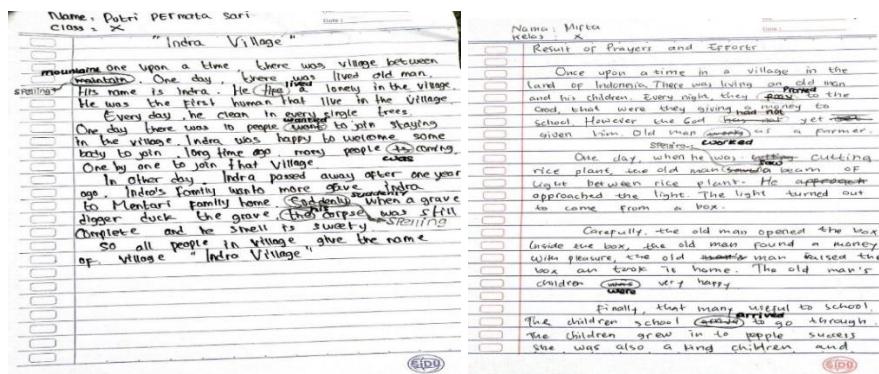 Name : Putri PERmata Sari
Class : X
"Indra Village"
One upon a time, there was village between
mountains
maintain. One day, there was lived old man.
spelling
lived
His name is Indra. He life a lonely in the village.
He was the first human that live in the village
Every day, he clean in every single trees
wanted
One day there was 10 people want to join staying
in the village. Indra was happy to welcome some
body to join, long time ago many people is coming
was
One by one to join that village
In other day Indra passed away after one year
ago. Indra's Family want to move grave Indra
to Mentari family home. Suddenly when a grave
suddenly
digger duck the grave, the corpse was still
his
spelling
complete and he smell is sweety.
So all people in village give the name
of village "Indra Village".
SIDU
Nama : Mifta
Kelas : X
Result of Prayers and Efforts
Once upon a time in a village in the
land of Indonesia There was living an old man
Prayed
and his children. Every night, they pray to the
God, what were they giving a money to
had not
school. However the God has not yet
given him. Old man as a farmer.
spelling worked
One day, when he was cutting
saw
rice plant, the old man a beam of
light between rice plant. He approach
approached the light. The light turned out
to come from a box.
Carefully, the old man opened the box
Inside the box, the old man found a money
With pleasure, the old man raised the
box an took is home. The old man's
children very happy
were
Finally, that many useful to school
arrived
The children school to go through.
The children grew in to people success
She was also a king children and
SIDU